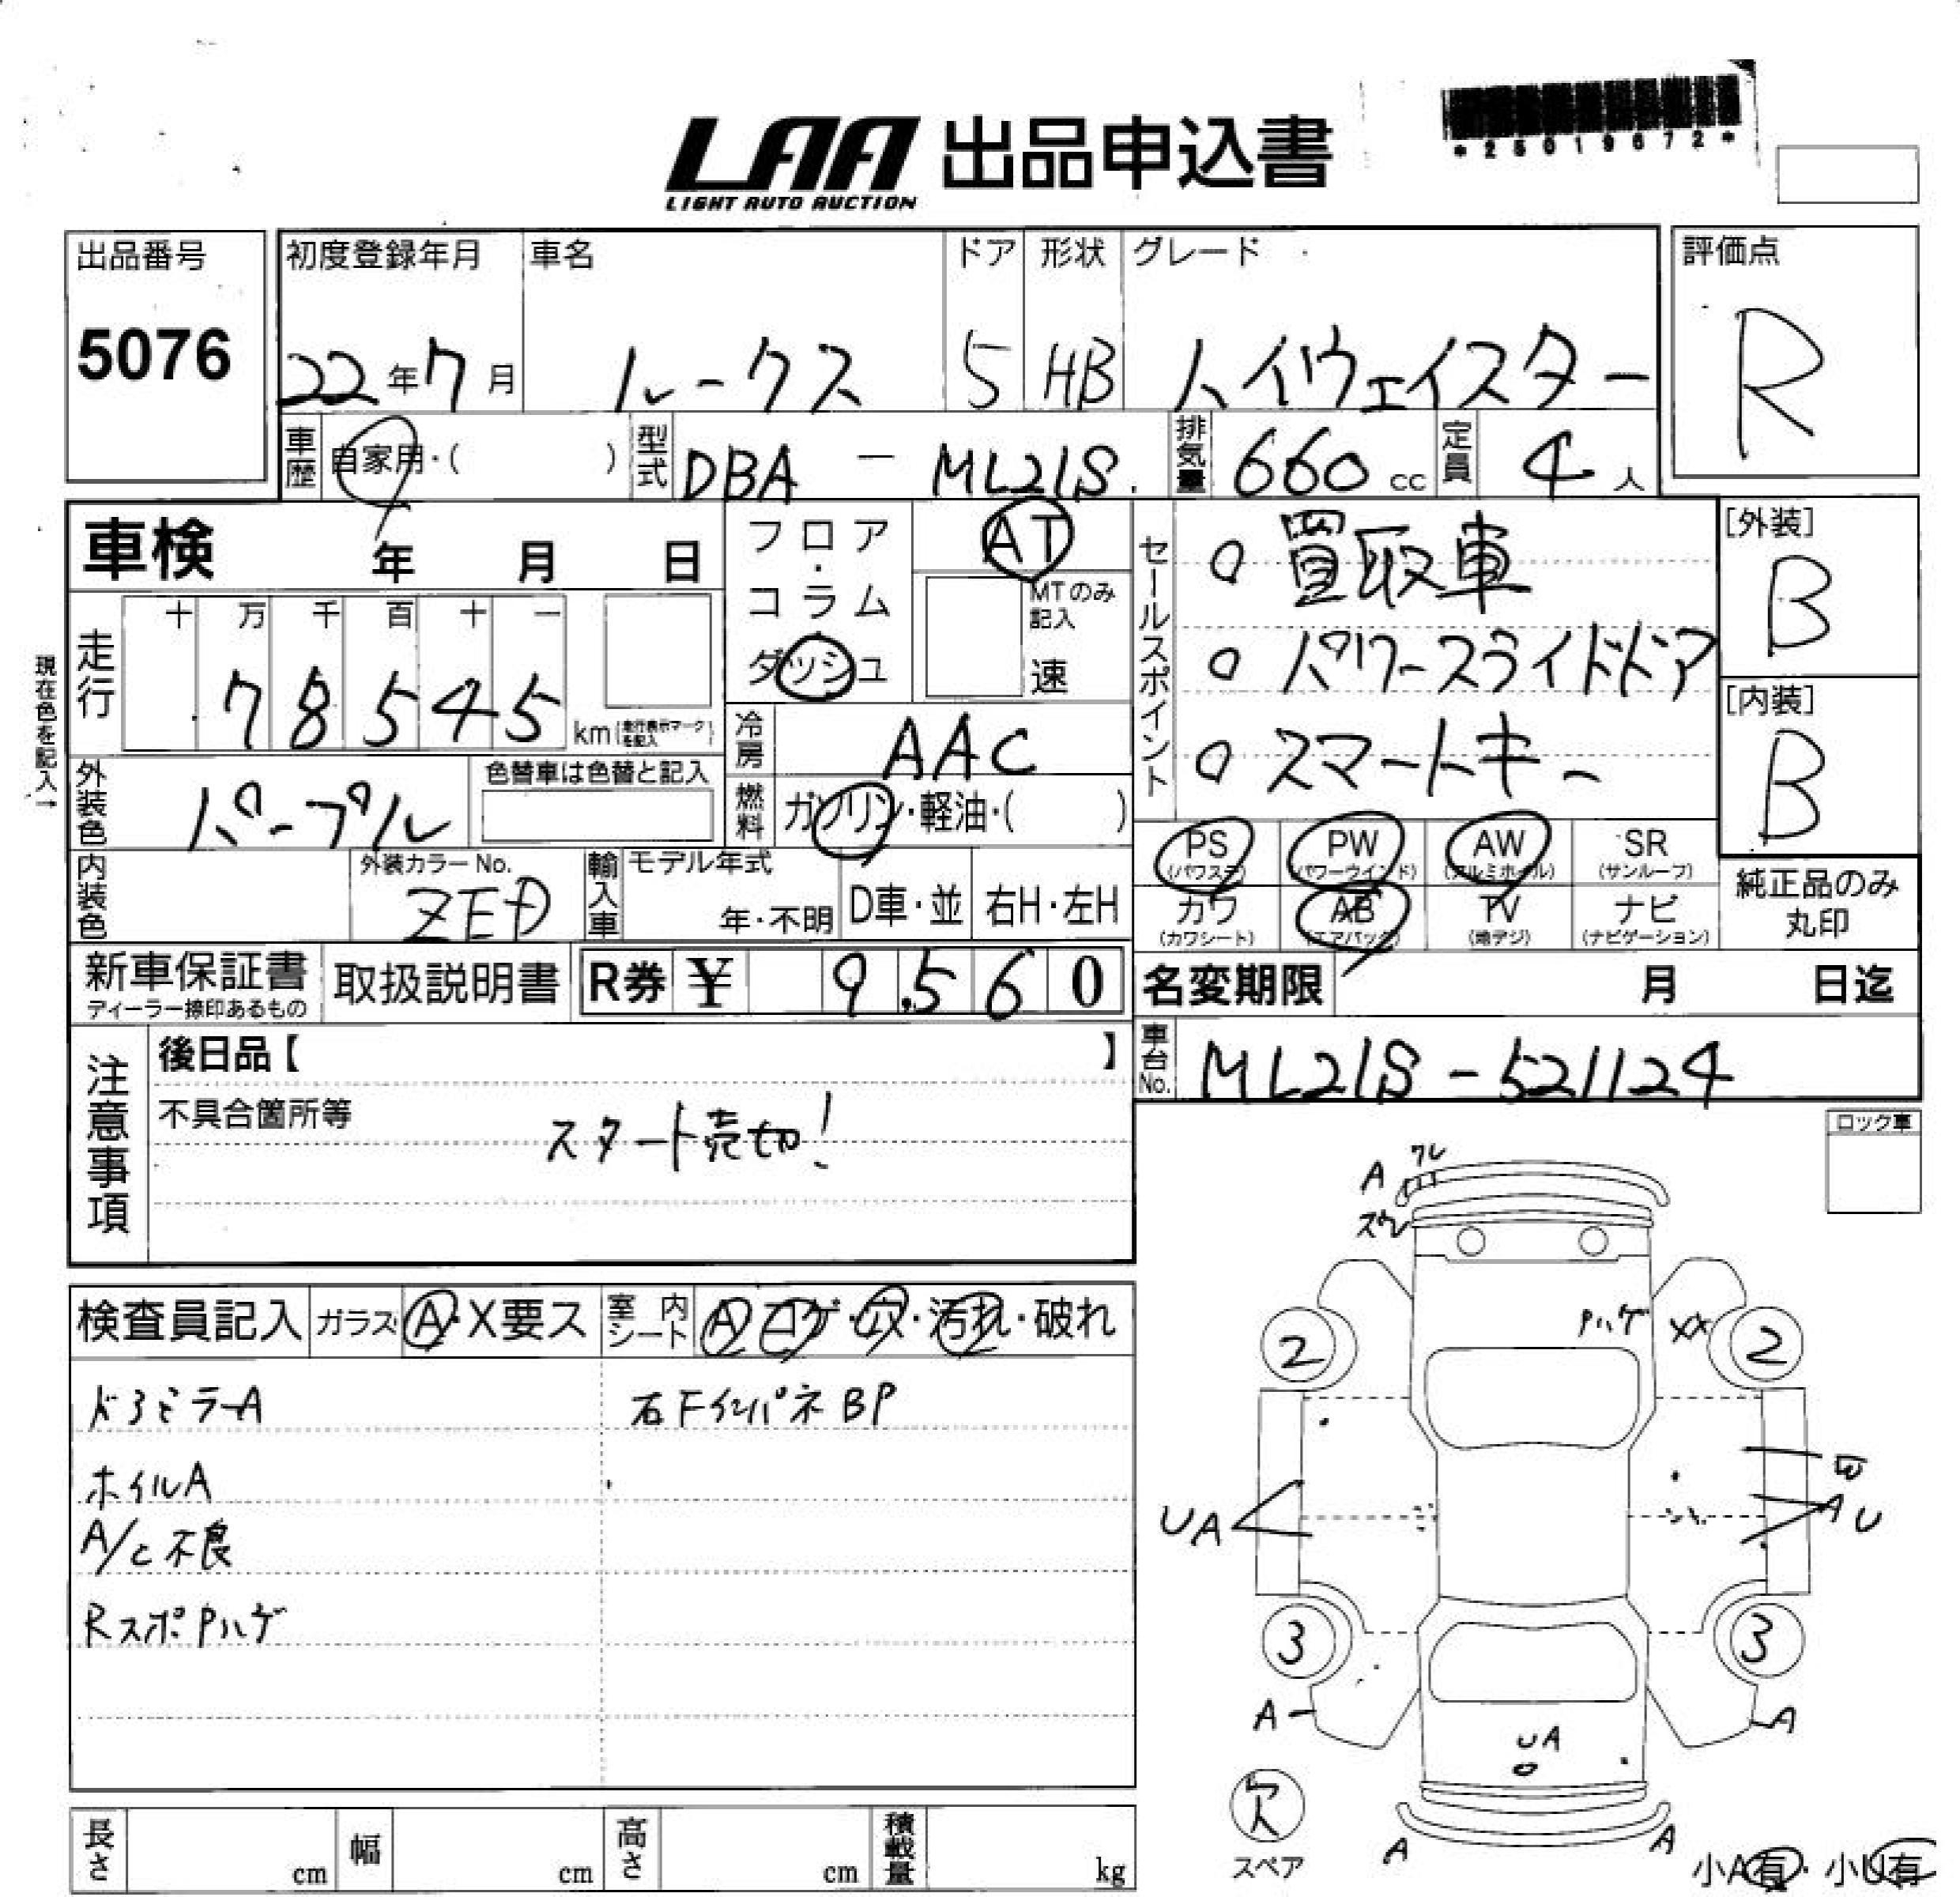 LAA 出品申込書
LIGHT AUTO AUCTION
*25019672*
出品番号
5076
初度登録年月
22年7月
車名
ルークス
ドア
5
形状
HB
グレード
ハイウェイスター
評価点
R
車歴
自家用・( )
型式
DBA - ML21S
排気量
660 cc
定員
4 人
車検 年 月 日
フロア・コラム
ダッシュ
AT
MTのみ記入
速
セールスポイント
○ 買取車
○ パワースライドドア
○ スマートキー
[外装]
B
[内装]
B
現在色を記入→
走行
十 万 千 百 十 一
7 8 5 4 5 km
(走行表示マークを記入)
冷房
AAC
外装色
パープル
色替車は色替と記入
燃料
ガソリン・軽油・( )
PS (パワステ)
PW (パワーウインド)
AW (アルミホイル)
SR (サンルーフ)
カワ (カワシート)
AB (エアバック)
TV (地デジ)
ナビ (ナビゲーション)
純正品のみ丸印
内装色
外装カラーNo.
ZED
輸入車
モデル年式
年・不明
D車・並
右H・左H
新車保証書
ディーラー捺印あるもの
取扱説明書
R券 ¥ 9,560
名変期限 月 日迄
車台No.
ML21S-521124
注意事項
後日品【 】
不具合箇所等
スタート売切!
ロック車
検査員記入
ガラス A・X要ス
室内シート A・コゲ・穴・汚れ・破れ
ドろミラーA
右FインパネBP
ホイルA
A/C不良
RスポPハゲ
A ワレ
ズレ
Pハゲ XX
2 2
W
UA
AU
3 3
A A
UA
欠
スペア
A A
小A有・小U有
長さ cm
幅 cm
高さ cm
積載量 kg